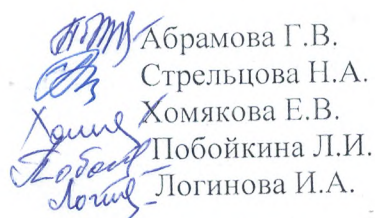 Абрамова Г.В.
Стрельцова Н.А.
Хомякова Е.В.
Побойкина Л.И.
Логинова И.А.